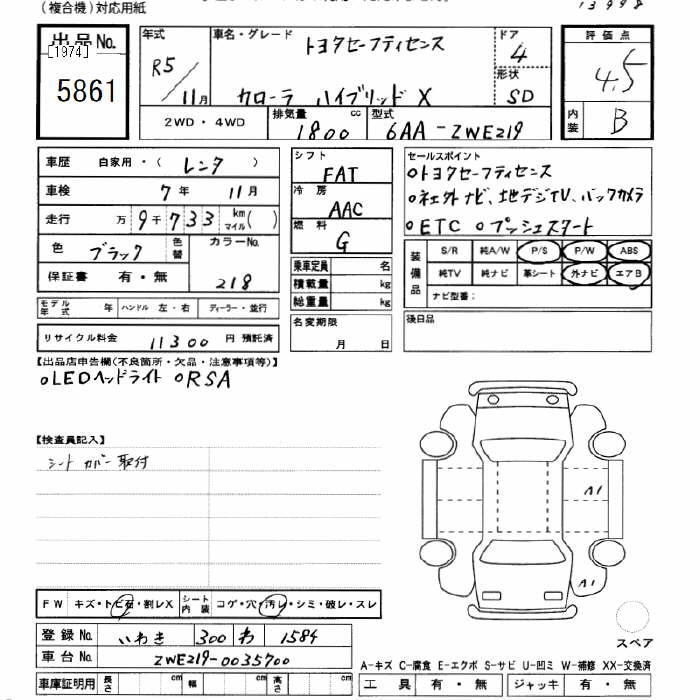 (複合機)対応用紙
13998
出品No.
[1974]
5861
年式
R5/11月
車名・グレード
トヨタセーフティセンス
カローラ ハイブリッド X
ドア
4
形状
SD
評価点
4.5
内装
B
2WD・4WD
排気量
1800 cc
型式
6AA-ZWE219
車歴 自家用・(レンタ)
車検 7年 11月
走行 万9千733 kmマイル( )
色 ブラック 色替 カラーNo.
218
保証書 有・無
モデル年式 年 ハンドル 左・右 ディーラー・並行
リサイクル料金 11300 円 預託済
シフト
FAT
冷房
AAC
燃料
G
乗車定員 名
積載量 kg
総重量 kg
名変期限
月 日
セールスポイント
○トヨタセーフティセンス
○社外ナビ、地デジTV、バックカメラ
○ETC ○プッシュスタート
装備品
S/R 純A/W P/S P/W ABS
純TV 純ナビ 革シート 外ナビ エアB
ナビ型番:
後日品
【出品店申告欄(不良箇所・欠品・注意事項等)】
○LEDヘッドライト ○RSA
【検査員記入】
シートカバー取付
A1
A1
スペア
FW キズ・トビ石・割レX シート内装 コゲ・穴・汚レ・シミ・破レ・スレ
登録No. いわき 300 わ 1584
車台No. ZWE219-0035700
車庫証明用 長さ cm 幅 cm 高さ cm
A-キズ C-腐食 E-エクボ S-サビ U-凹ミ W-補修 XX-交換済
工具 有・無 ジャッキ 有・無